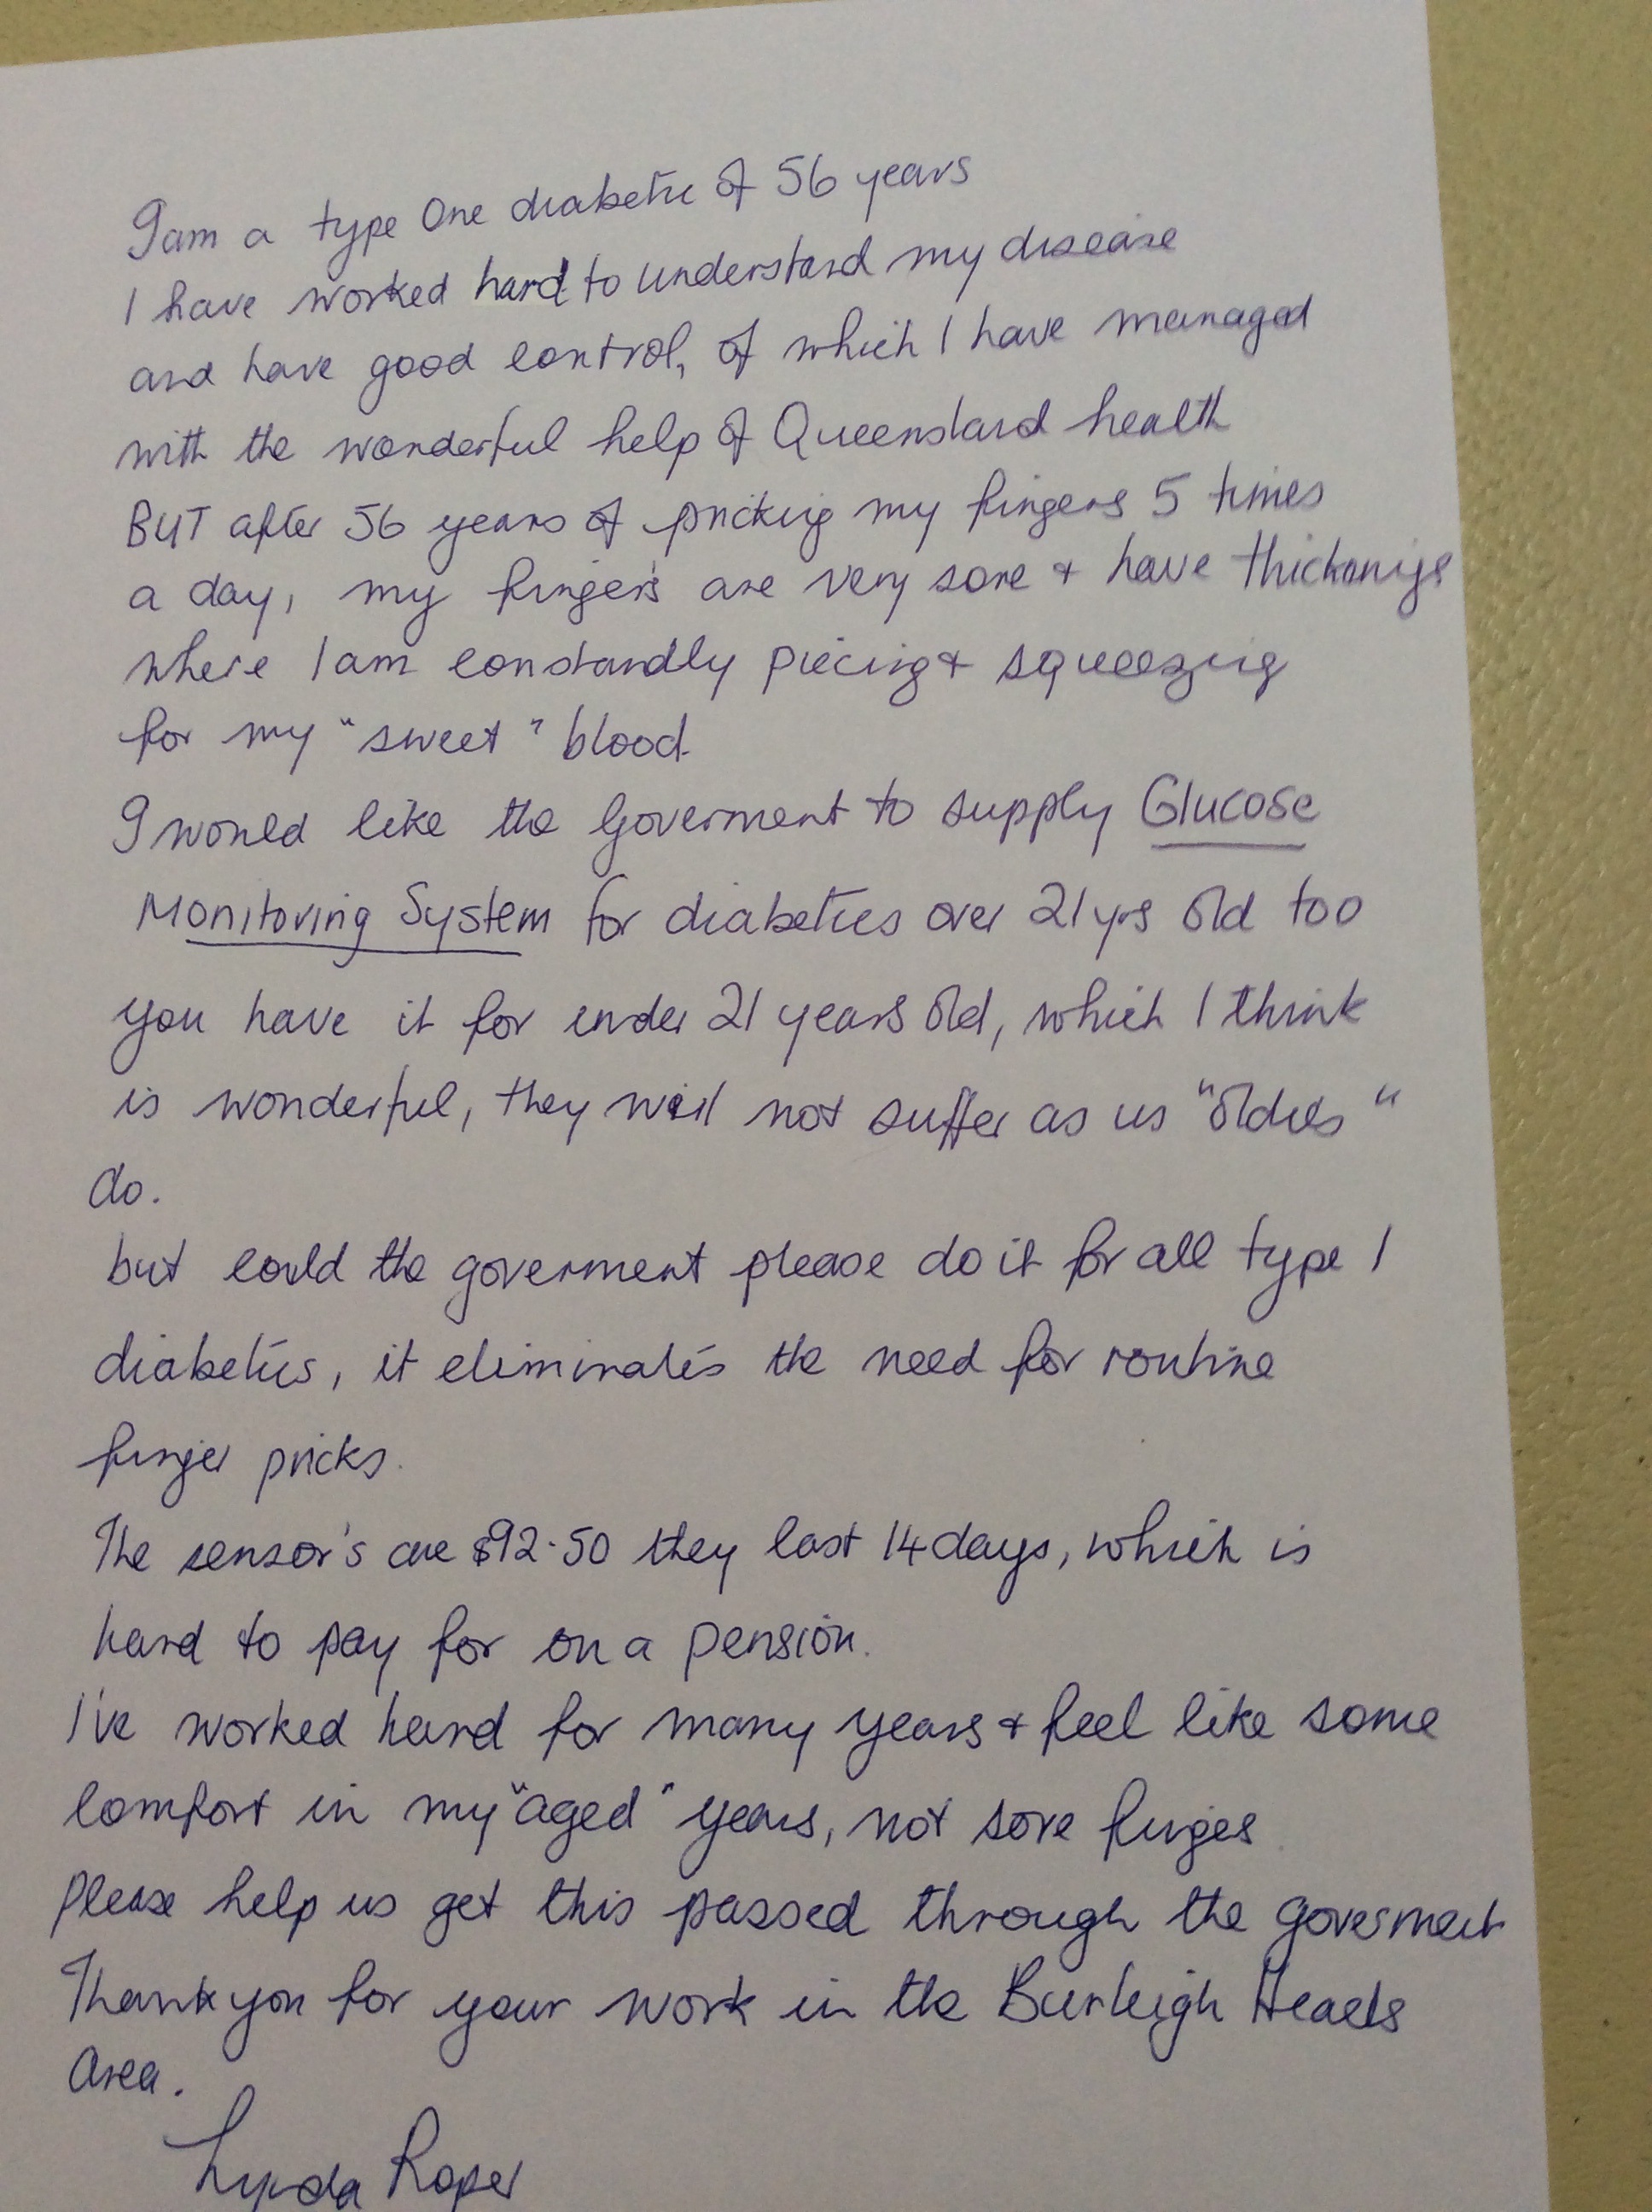 I am a type One diabetic of 56 years
I have worked hard to understand my disease
and have good control, of which I have managed
with the wonderful help of Queensland health
BUT after 56 years of pricking my fingers 5 times
a day, my finger's are very sore + have thickenings
where I am constandly piecing + squeezing
for my "sweet" blood.
I would like the Goverment to supply Glucose
Monitoring System for diabetics over 21 yrs old too
you have it for under 21 years old, which I think
is wonderful, they will not suffer as us "oldies"
do.
but could the goverment please do it for all type 1
diabetics, it eliminates the need for routine
finger pricks.
The sensor's are $92.50 they last 14 days, which is
hard to pay for on a pension.
I've worked hard for many years + feel like some
comfort in my "aged" years, not sore finges
Please help us get this passed through the goverment
Thank you for your work in the Burleigh Heads
Area.
Lynda Roper